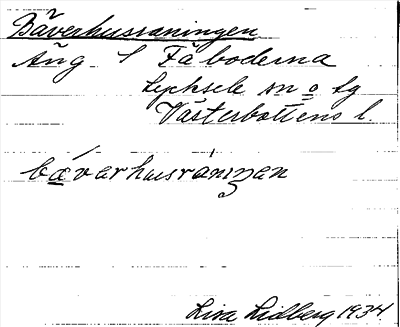 Bäverhusraningen
Äng S Fäboderna
Lycksele sn o lg
Västerbottens l.
bǽvarhusrániŋen
Lisa Lidberg 1934.